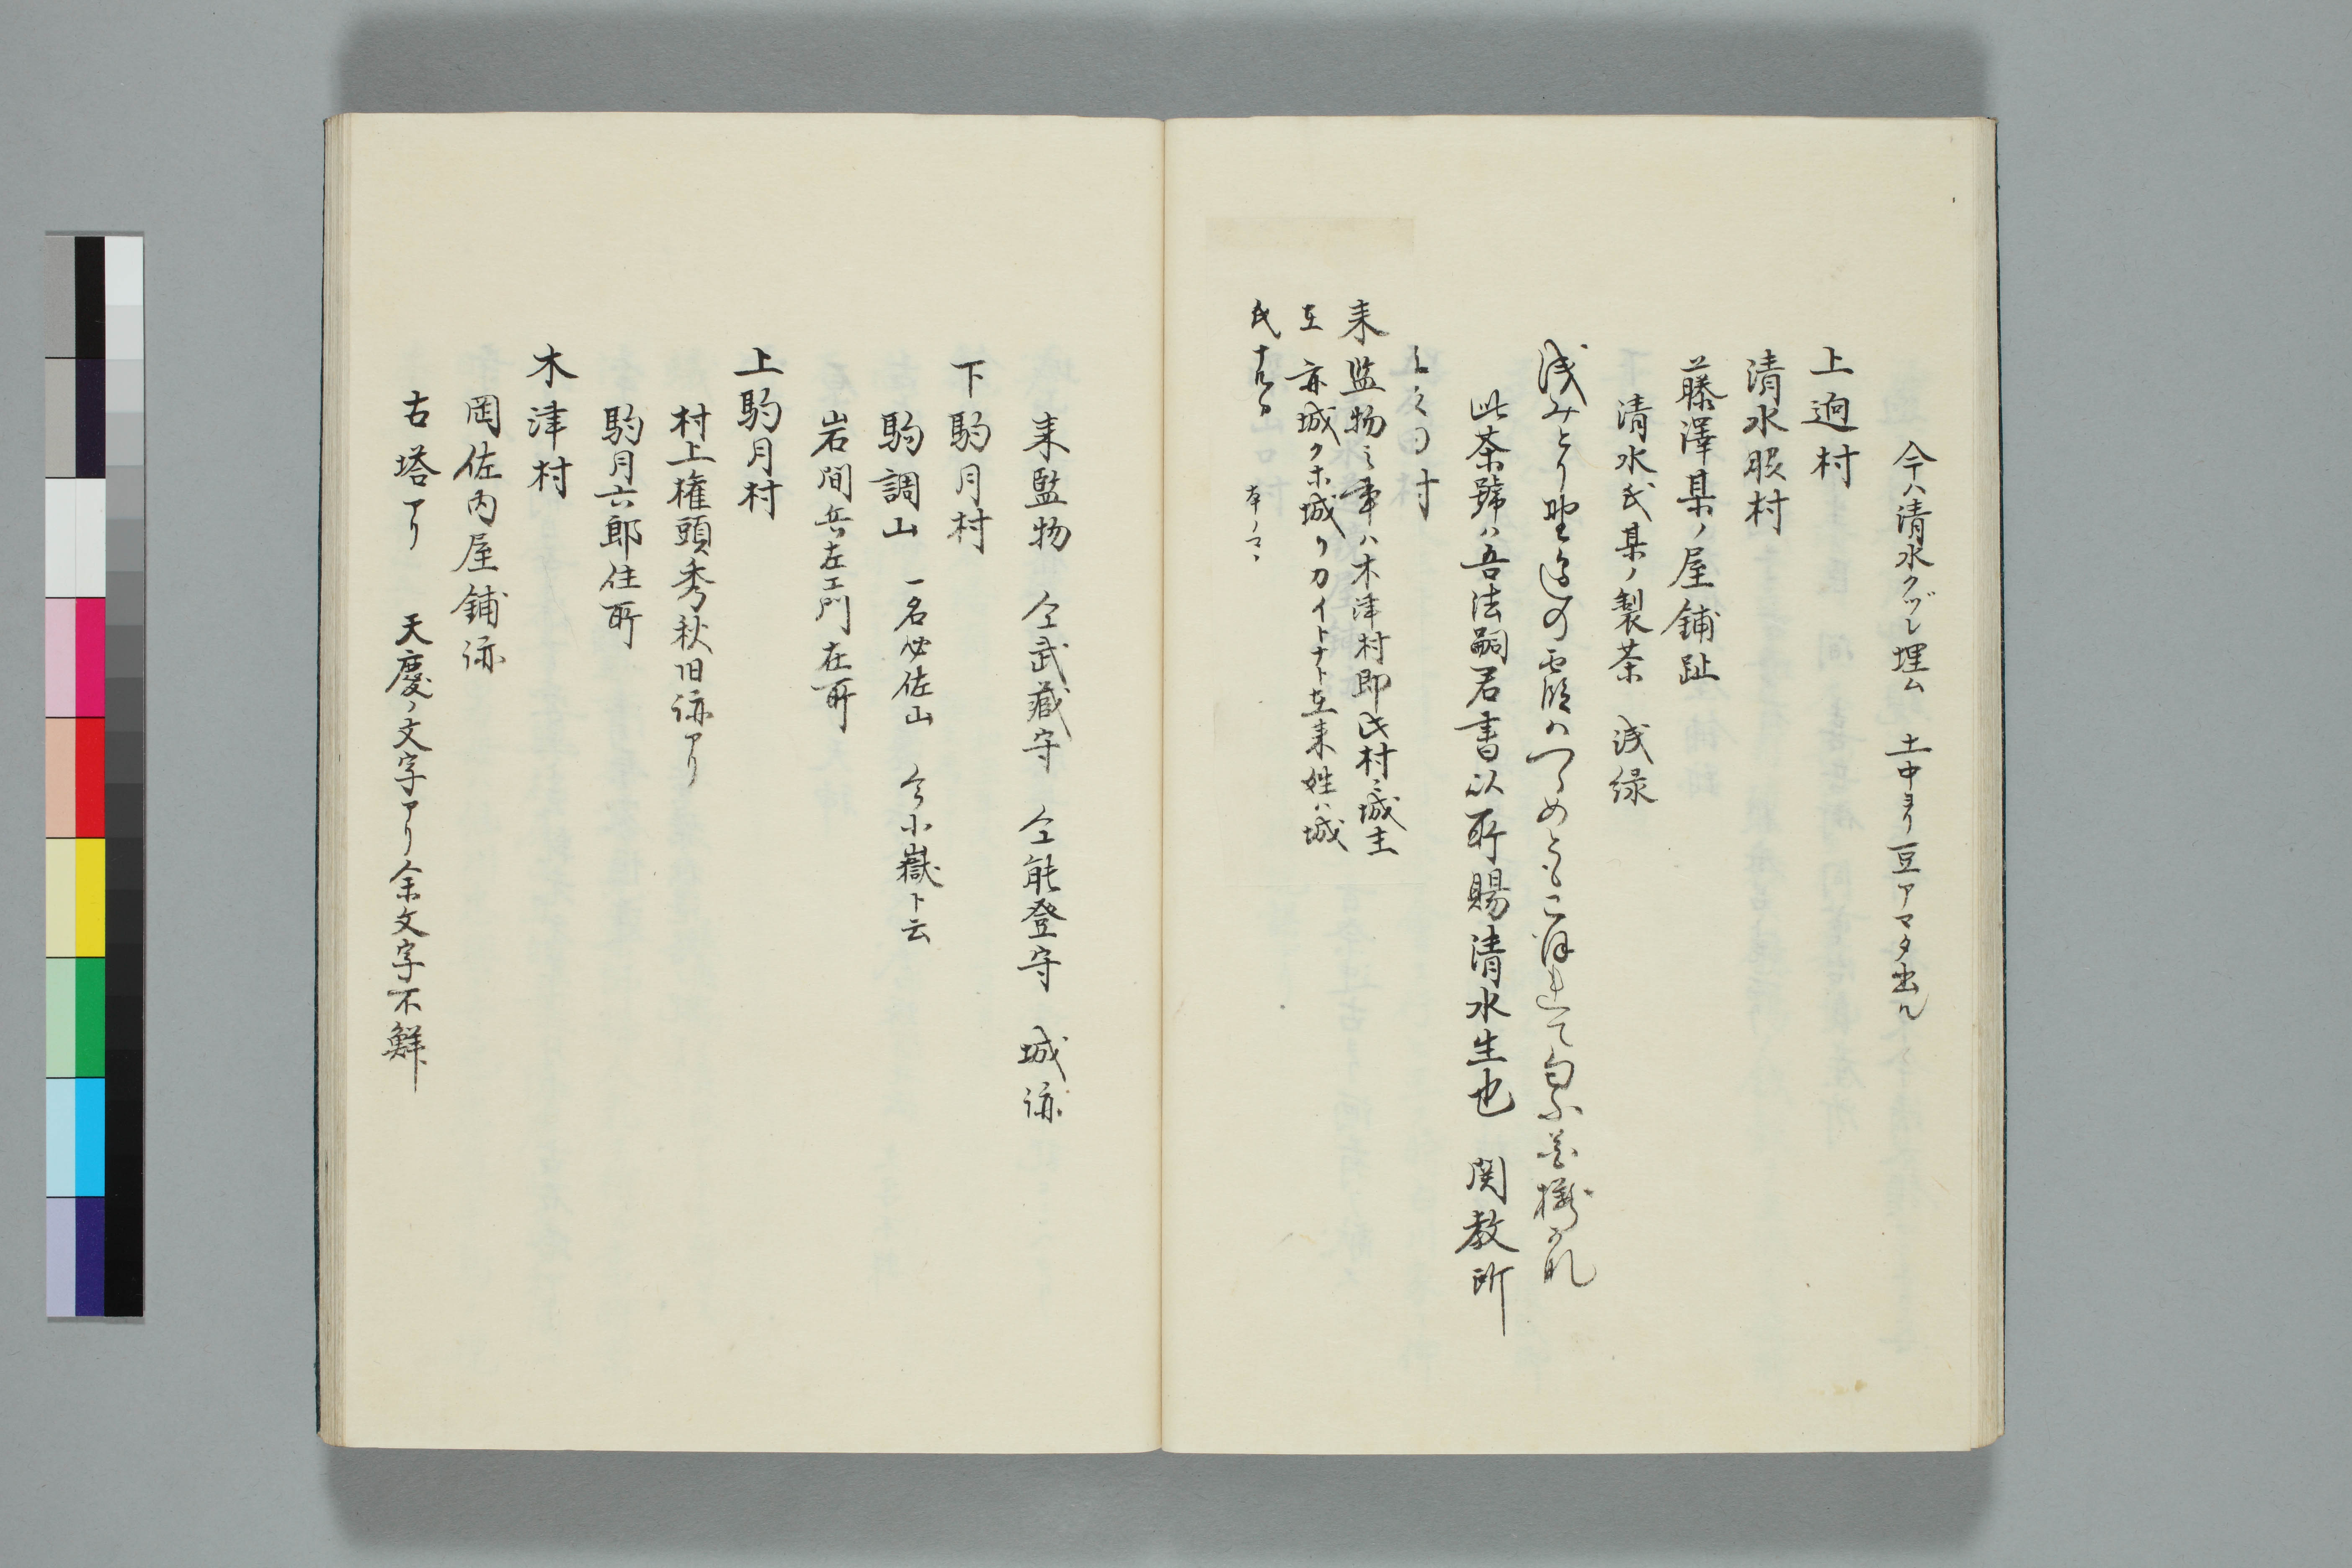 今ハ清水クヅレ埋ム 土中ヨリ豆アマタ出ル
上迥村
清水脇村
藤澤某ノ屋鋪趾
清水氏某ノ製茶 浅緑
浅みとり野辺の霞はつゝめともこほれて匂ふ花櫻かな
此茶號ハ吾法嗣君書以所賜清水生也 関教所
村
耒監物之事ハ木津村即氏村ニ城主
亦城クホ城リカイトナト在耒姓ハ城
氏ナルカ 本ノマヽ
耒監物 仝武藏守 仝能登守 城跡
下駒月村
駒調山 一名必佐山 今小嶽ト云
岩間兵左エ門在所
上駒月村
村上権頭秀秋旧跡アリ
駒月六郎住所
木津村
岡佐内屋鋪跡
古塔アリ 天慶ノ文字アリ余文字不鮮